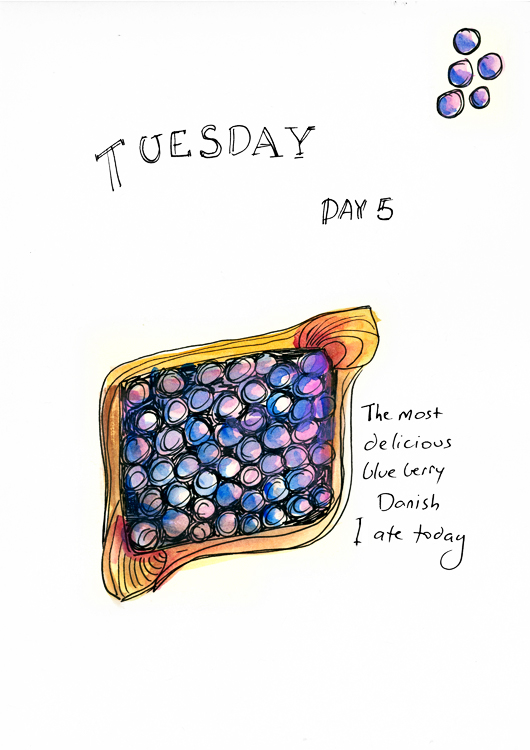 TUESDAY
DAY 5
The most
delicious
blue berry
Danish
I ate today